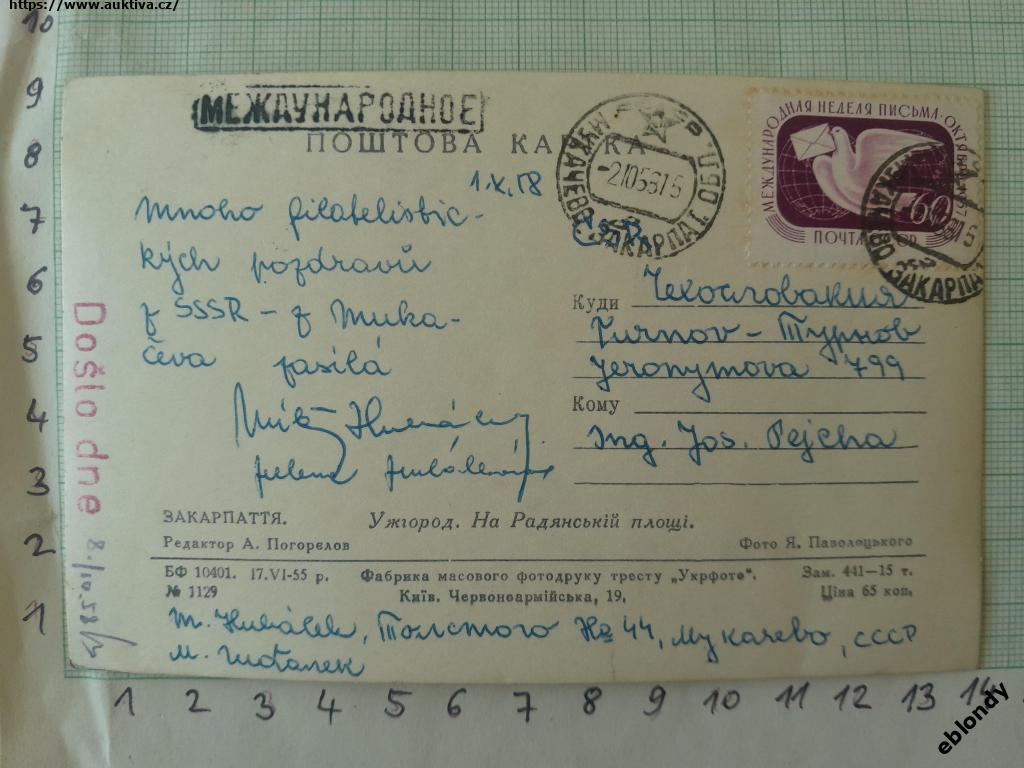 https://www.auktiva.cz/
МЕЖДУНАРОДНОЕ
ПОШТОВА КАРТКА
1.X.58
Mnoho filatelistic-
kých pozdravů
z SSSR - z Muka-
čeva zasílá
ČSR
МУКАЧЕВО ЗАКАРПАТ. ОБЛ.
МЕЖДУНАРОДНАЯ НЕДЕЛЯ ПИСЬМА · ОКТЯБРЬ 1957
60
ПОЧТА СССР
МУКАЧЕВО ЗАКАРПАТ.
Куди Чехословакия
Turnov - Турнов
Jeronymova 799
Кому
Ing. Jos. Pejcha
ЗАКАРПАТТЯ. Ужгород. На Радянській площі.
Редактор А. Погорєлов Фото Я. Паволоцького
БФ 10401. 17.VI-55 р. Фабрика масового фотодруку тресту „Укрфото“. Зам. 441—15 т.
№ 1129 Київ. Червоноармійська, 19. Ціна 65 коп.
Толстого № 44, Мукачево, СССР
Došlo dne 8./10.58
10
9
8
7
6
5
4
3
2
1
1 2 3 4 5 6 7 8 9 10 11 12 13 14
eblondy